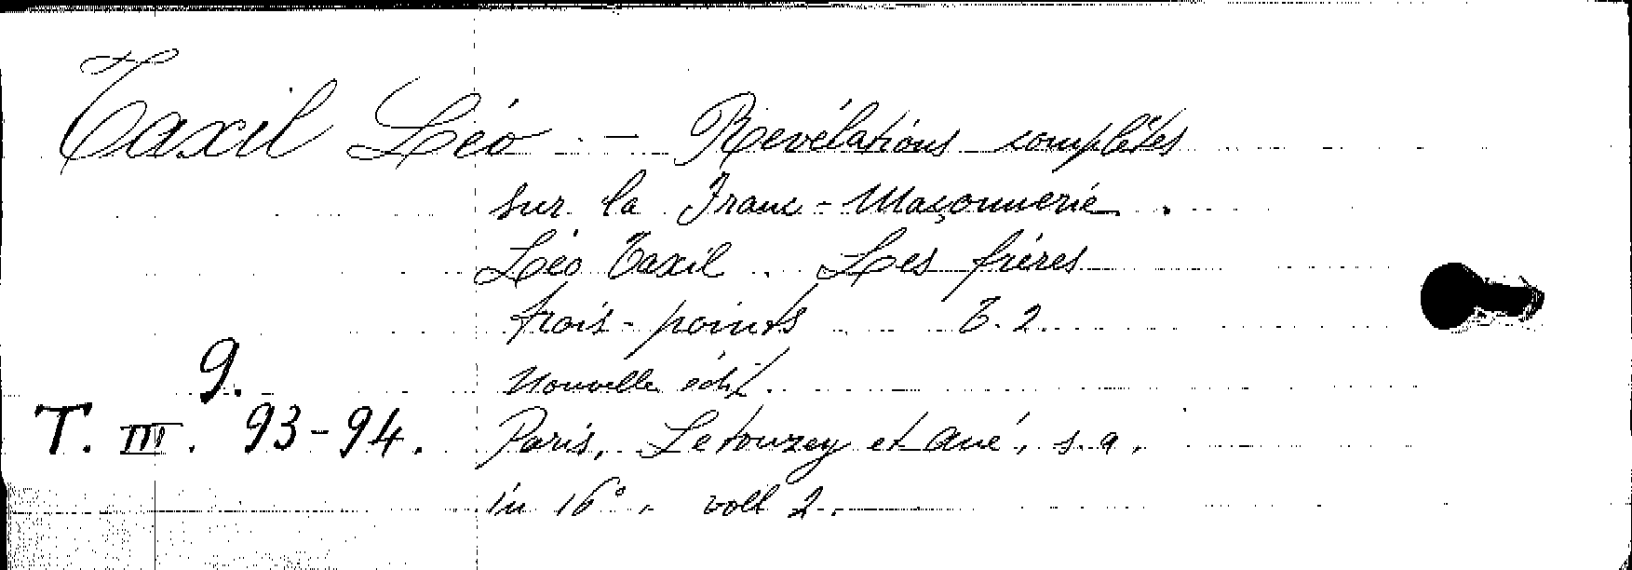 Taxil Léo. — Revélations complètes
sur la Franc-Maçonnerie.
Léo Taxil. Les fréres
trois-points T. 2.
9.
Nouvelle édit.
T. III. 93-94.
Paris, Letouzey et Ané, s.a.
in 16°. voll 2.